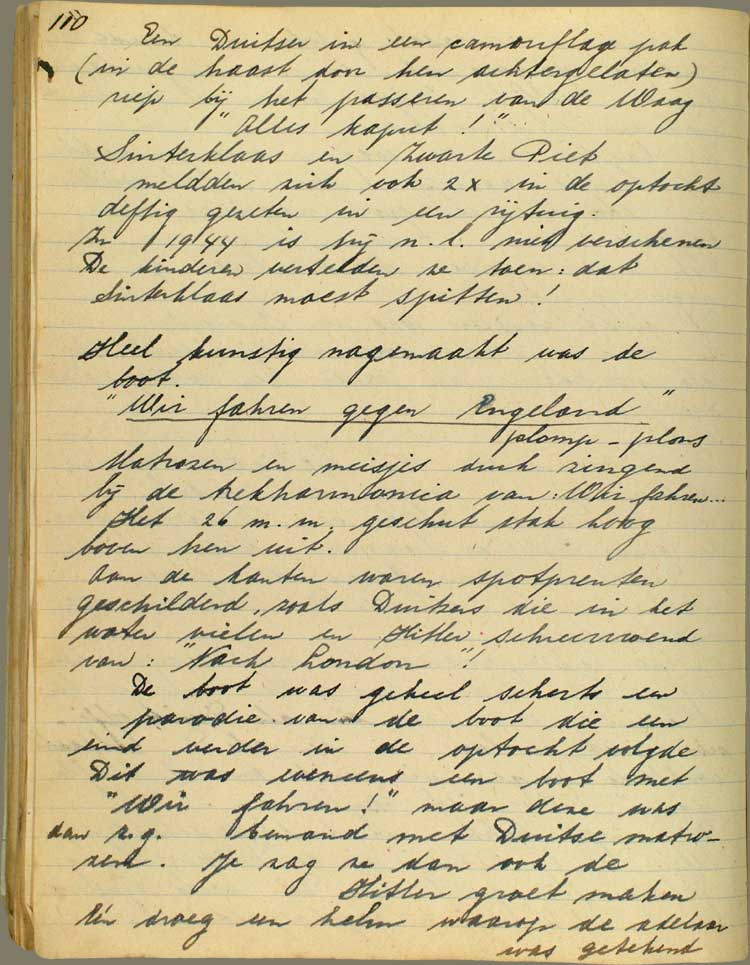 110
Een Duitser in een camouflage pak
(in de haast door hen achtergelaten)
riep bij het passeren van de Waag
"Alles kaput!"
Sinterklaas en Zwarte Piet
meldden zich ook 2x in de optocht
deftig gezeten in een rijtuig.
In 1944 is hij n.l. niet verschenen
De kinderen vertelden ze toen: dat
Sinterklaas moest spitten!
Heel kunstig nagemaakt was de
boot.
"Wir fahren gegen Engeland"
plomp - plons
Matrozen en meisjes druk zingend
bij de trekharmonica van: Wir fahren...
Het 26 m.m. geschut stak hoog
boven hen uit.
Aan de kanten waren spotprenten
geschilderd, zoals Duitsers die in het
water vielen en Hitler schreeuwend
van: "Nach London"!
De boot was geheel scherts een
parodie van de boot die een
eind verder in de optocht volgde
Dit was eveneens een boot met
"Wir fahren!" maar deze was
dan z.g. bemand met Duitse matro-
zen. Je zag ze dan ook de
Hitler groet maken
Eén droeg een helm waarop de adelaar
was getekend